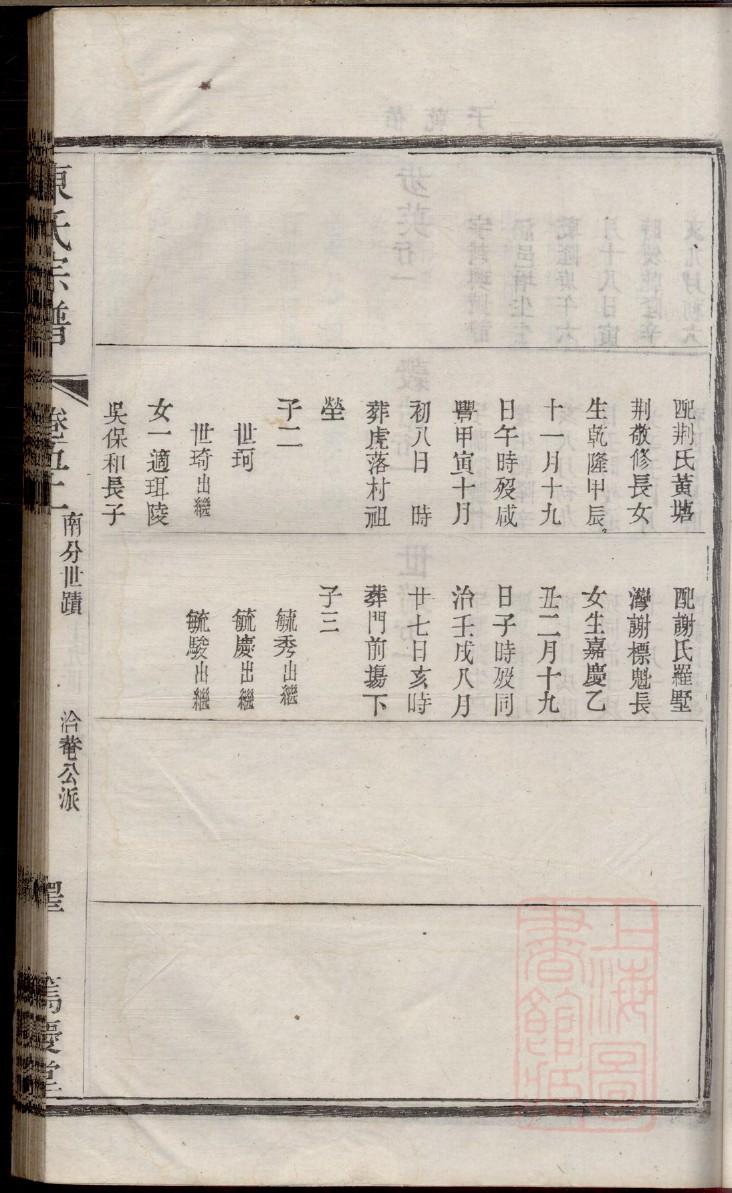 配荆氏黃塘
荆敬修長女
生乾隆甲辰
十一月十九
日午時歿咸
豐甲寅十月
初八日　時
葬虎落村祖
塋
子二
世珂
世琦出繼
女一適珥陵
吳保和長子
配謝氏羅墅
灣謝標魁長
女生嘉慶乙
丑二月十九
日子時歿同
治壬戌八月
廿七日亥時
葬門前塲下
子三
毓秀出繼
毓慶出繼
毓駿出繼
陳氏宗譜
卷五十
南分世蹟
洽菴公派
篤慶堂
上海圖書館藏